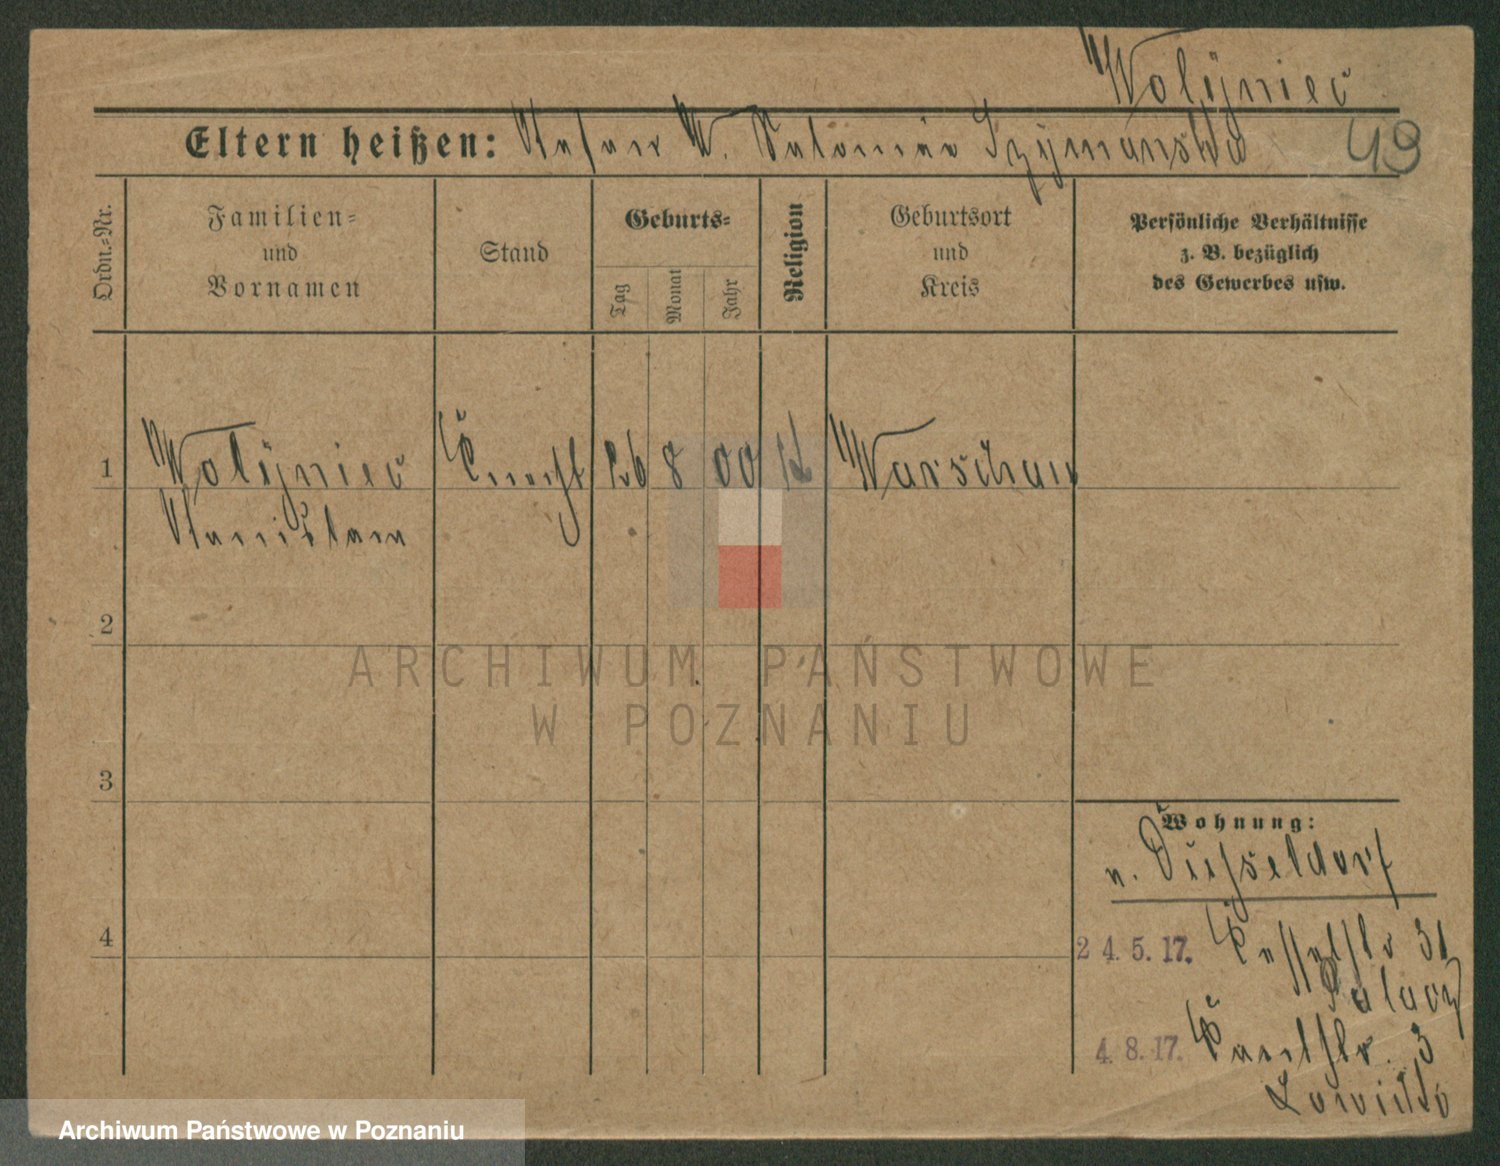 Wolÿniec
Eltern heißen: Stefan W. Salomea Szÿmanska 49
Ordn.-Nr.
Familien-
und
Vornamen
Stand
Geburts-
Tag
Monat
Jahr
Religion
Geburtsort
und
Kreis
Persönliche Verhältnisse
z. B. bezüglich
des Gewerbes usw.
1 Wolÿniec Knecht 26 8 00 k Warschau
Stanislaw
2
3
4
Wohnung:
n. Düsseldorf
24.5.17. 31
4.8.17. 3
ARCHIWUM PAŃSTWOWE
W POZNANIU
Archiwum Państwowe w Poznaniu